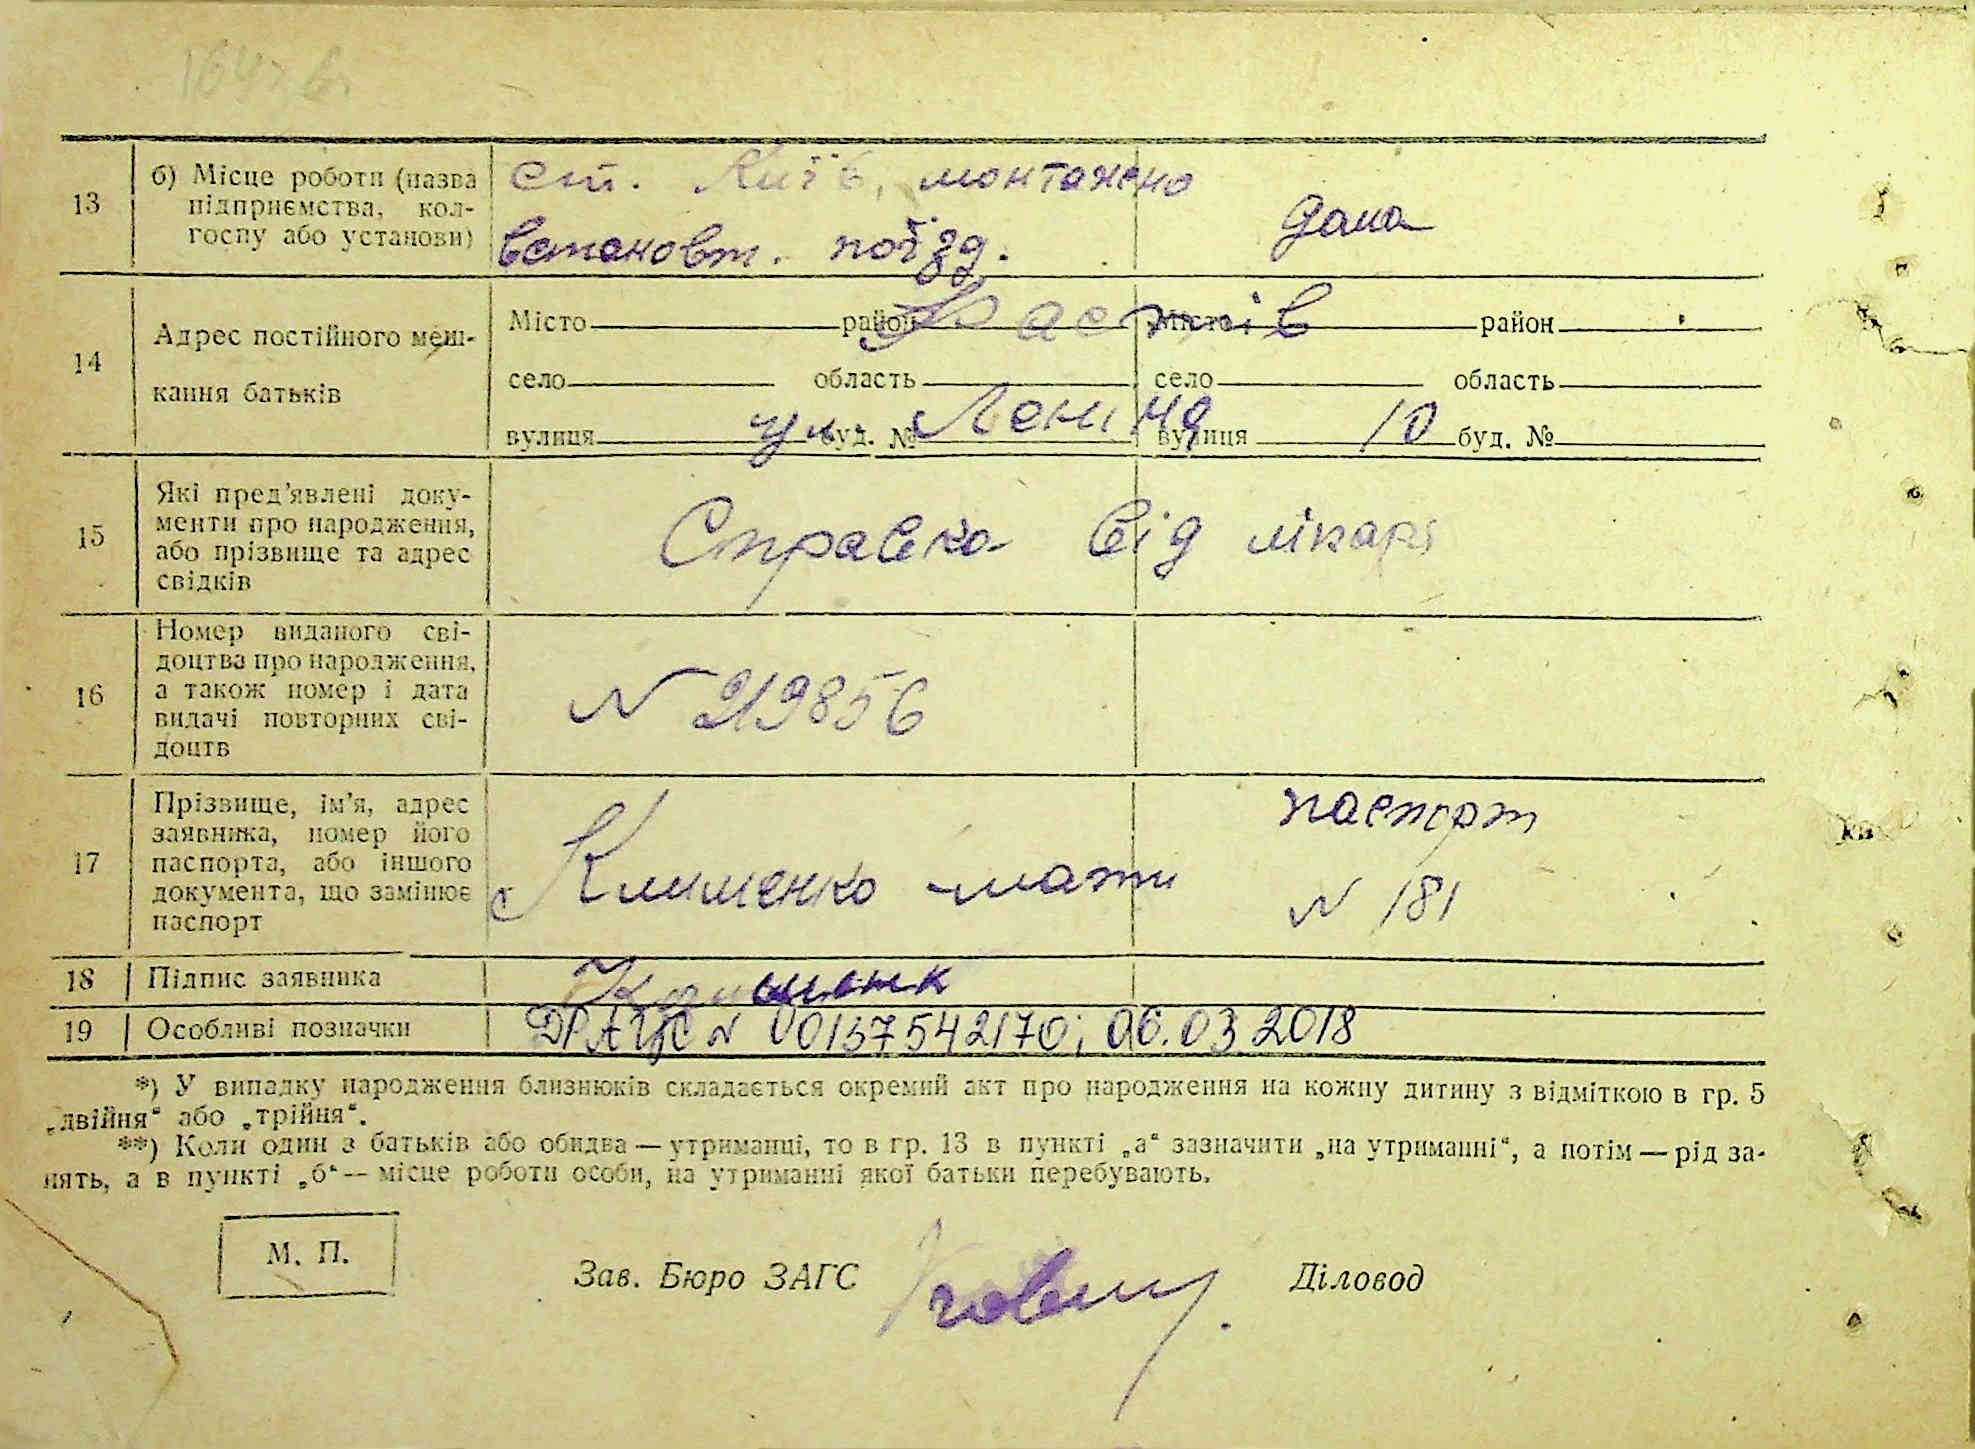 13
б) Місце роботи (назва
підприємства, кол-
госпу або установи)
ст. Київ, монтажно
встановт. поїзд.
дома
14
Адрес постійного меш-
кання батьків
Місто район Місто район
Фастків
село область село область
вулиця буд. № вулиця буд. №
ул. Леніна 10
15
Які пред'явлені доку-
менти про народження,
або прізвище та адрес
свідків
Справка від лікаря
16
Номер виданого сві-
доцтва про народження,
а також номер і дата
видачі повторних сві-
доцтв
N 219856
17
Прізвище, ім'я, адрес
заявника, номер його
паспорта, або іншого
документа, що замінює
паспорт
Клименко мати
паспорт
N 181
18 Підпис заявника
19 Особливі позначки
ДРАЦС N 00137542170; 06.03.2018
*) У випадку народження близнюків складається окремий акт про народження на кожну дитину з відміткою в гр. 5
„двійня“ або „трійня“.
**) Коли один з батьків або обидва — утриманці, то в гр. 13 в пункті „а“ зазначити „на утриманні“, а потім — рід за-
нять, а в пункті „б“ — місце роботи особи, на утриманні якої батьки перебувають.
М. П.
Зав. Бюро ЗАГС
Діловод